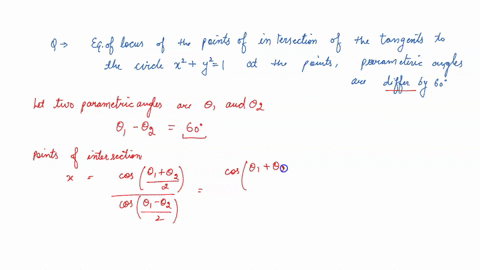 Q → Eq. of locus of the points of intersection of the tangents to
the circle x² + y² = 1 at the points, parametric angles
are differ by 60°
Let two parametric angles are θ₁ and θ₂
θ₁ - θ₂ = 60°
points of intersection
x = cos((θ₁ + θ₂)/2) / cos((θ₁ - θ₂)/2) = cos(θ₁ + θ₂